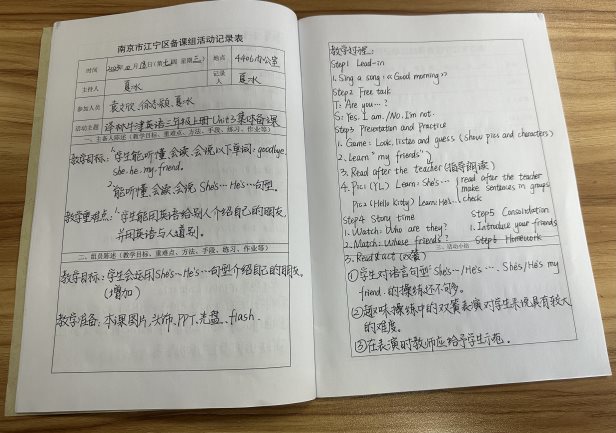 南京市江宁区备课组活动记录表
时间
月18日(第七周 星期三)
地点
440b办公室
主持人
夏冰
记录人
夏冰
参加人员
袁文欣、徐杏颖、夏冰
活动主题
译林牛津英语三年级上册Unit3集体备课
一、主备人陈述(教学目标、重难点、方法、手段、练习、作业等)
教学目标:1.学生能听懂、会读、会说以下单词: goodbye.
she. he. my. friend.
2.能听懂、会读、会说 She's… He's…句型.
教学重难点:1.学生能用英语给别人介绍自己的朋友,
并用英语与人道别。
二、组员陈述(教学目标、重难点、方法、手段、练习、作业等)
教学目标:学生会运用She's… He's…句型介绍自己的朋友。
(增加)
教学准备:本课图片、头饰、PPT、光盘、flash.
教学过程:
Step1 Lead-in
1. Sing a song: 《Good morning》
Step2 Free talk
T: Are you…?
S: Yes, I am. /No, I'm not.
Step3 Presentation and Practice
1. Game: Look, listen and guess (Show pics and characters)
2. Learn "my friends"
3. Read after the teacher (指导朗读)
4. Pic1 (YL) Learn: She's…
read after the teacher
make sentences in groups
Pic2 (Hello Kitty) Learn: He's…
check
Step4 Story time
Step5 Consolidation
1. Watch: Who are they?
1. Introduce your friends
2. Match: Whose friends?
Step6 Homework
三、活动小结
3. Read & act (双簧)
①学生对语言句型 She's…/He's…. She's/He's my
friend. 的操练还不够多。
②趣味操练中的双簧表演对学生来说具有较大
的难度。
③在表演时教师应给予学生示范。